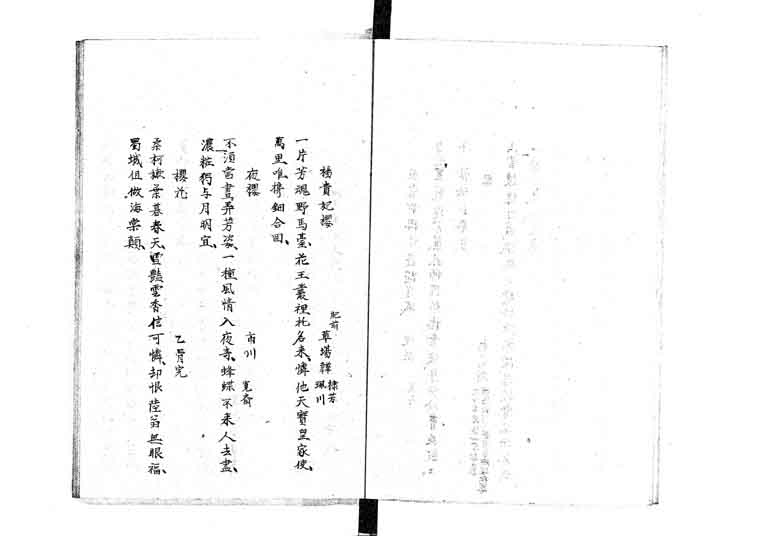 楊貴妃櫻 肥前 草場韡 棣芳 珮川
一片芳魂野馬臺、花王叢裡托名来、憐他天寶皇家使、
萬里唯擕鈿合回、
夜櫻 市川 寛斎
不須當晝弄芳姿、一種風情入夜奇、蜂蝶不来人去盡、
濃粧獨与月明宜、
櫻花 乙骨完
柔柯嫩葉暮春天、雪艷雲香信可憐、却恨陸翁無眼福、
蜀城但做海棠顛、